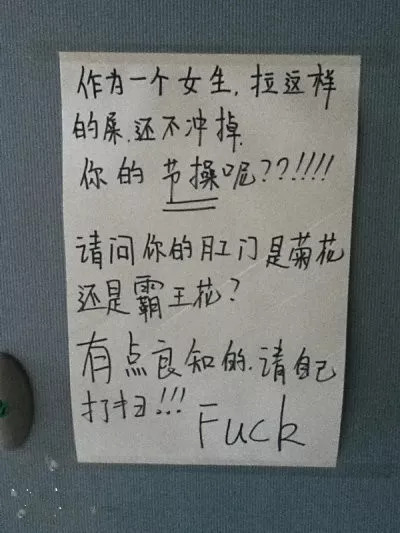 作为一个女生,拉这样
的屎.还不冲掉.
你的节操呢??!!!!
请问你的肛门是菊花
还是霸王花?
有点良知的.请自己
打扫!!!
Fuck